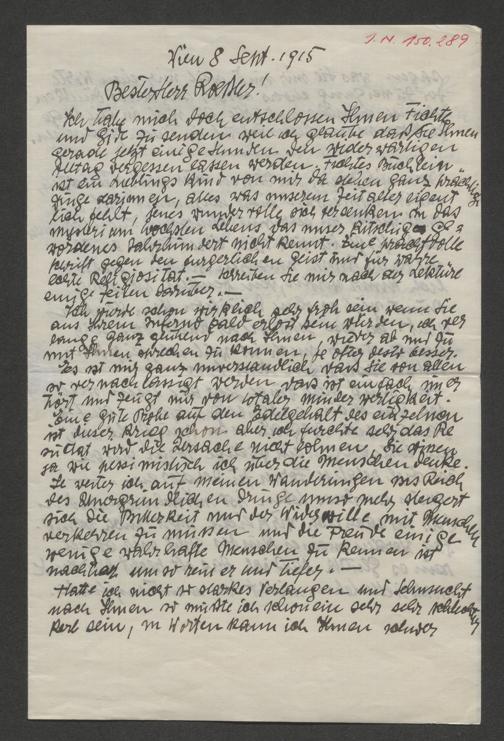 I.N. 150.289
Wien 8 Sept. 1915
Bester Herr Roessler!
Ich habe mich doch entschlossen Ihnen Fichte
und Gide zu senden weil ich glaube dass Sie Ihnen
gerade jetzt einige Stunden den widerwärtigen
Alltag vergessen lassen werden. Fichtes Büchlein
ist ein Lieblings Kind von mir da stehen ganz prächtige
Dinge darinnen, alles was unserem Zeitalter eigent
lich fehlt, jenes wundervolle sich versenken in das
Mysterium höchsten Lebens das unser
wordenes Jahrhundert nicht kennt. Eine prachtvolle
Schrift gegen den bürgerlichen Geist und für wahre
echte Religiosität. — Schreiben Sie mir nach der Lektüre
einige Zeilen darüber. —
Ich würde schon wirklich sehr froh sein wenn Sie
aus Ihrem Inferno bald erlöst sein würden, ich ver
lange ganz glühend nach Ihnen, wieder ab und zu
mit Ihnen sprechen zu können, je öfter desto besser.
Es ist mir ganz unverständlich, dass Sie von allen
so vernachlässigt werden, das ist einfach uner
hört und zeugt mir von totaler Minderwertigkeit.
Eine gute Probe auf den Edelgehalt des einzelnen
ist dieser Krieg schon aber ich fürchte sehr das Re
sultat wird die Ursache nicht lohnen. Sie wissen
ja wie pessimistisch ich über die Menschen denke.
Je weiter ich auf meinen Wanderungen ins Reich
des Unergründlichen dringe umso mehr steigert
sich die Bitterkeit und der Widerwille mit Menschen
verkehren zu müssen und die Freude einige
wenige wahrhafte Menschen zu kennen ist
nachher umso reiner und tiefer. —
Hätte ich nicht so starkes Verlangen und Sehnsucht
nach Ihnen so müsste ich schon ein sehr sehr schlechter
Kerl sein, in Worten kann ich Ihnen schwer